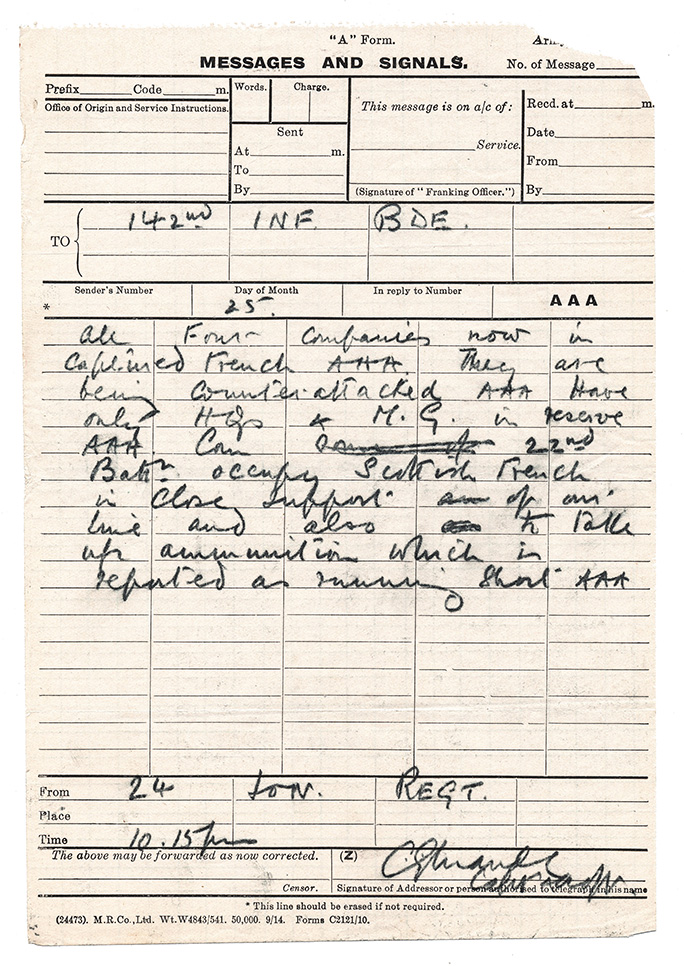 "A" Form.
Army
MESSAGES AND SIGNALS.
No. of Message
Prefix Code m.
Words. Charge.
This message is on a/c of:
Recd. at m.
Office of Origin and Service Instructions.
Sent
Date
At m.
Service.
From
To
By
(Signature of "Franking Officer.")
By
TO
142nd INF. BDE.
Sender's Number
Day of Month
In reply to Number
AAA
*
25.
All Four companies now in
captured Trench AAA. They are
being counter-attacked AAA Have
only HQs & M.G. in reserve
AAA Can 22nd
Battn occupy Scottish Trench
in close support of our
line and also to take
up ammunition which is
reported as running short AAA
From 24 LON. REGT.
Place
Time 10.15pm
The above may be forwarded as now corrected.
(Z)
Capt
Censor.
Signature of Addressor or person authorised to telegraph in his name
* This line should be erased if not required.
(24473). M.R.Co.,Ltd. Wt.W4843/541. 50,000. 9/14. Forms C2121/10.